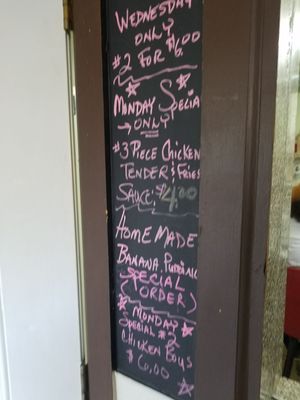 WEDNESDAY
ONLY
#2 FOR $6.00
MONDAY SPECIA
→ ONLY
#3 PIECE CHICKEN
TENDER & FRIES
SAUCE: $4.00
HOMEMADE
BANANA
SPECIAL
(ORDER)
MONDAY
SPECIAL #2
CHICKEN
$6.00